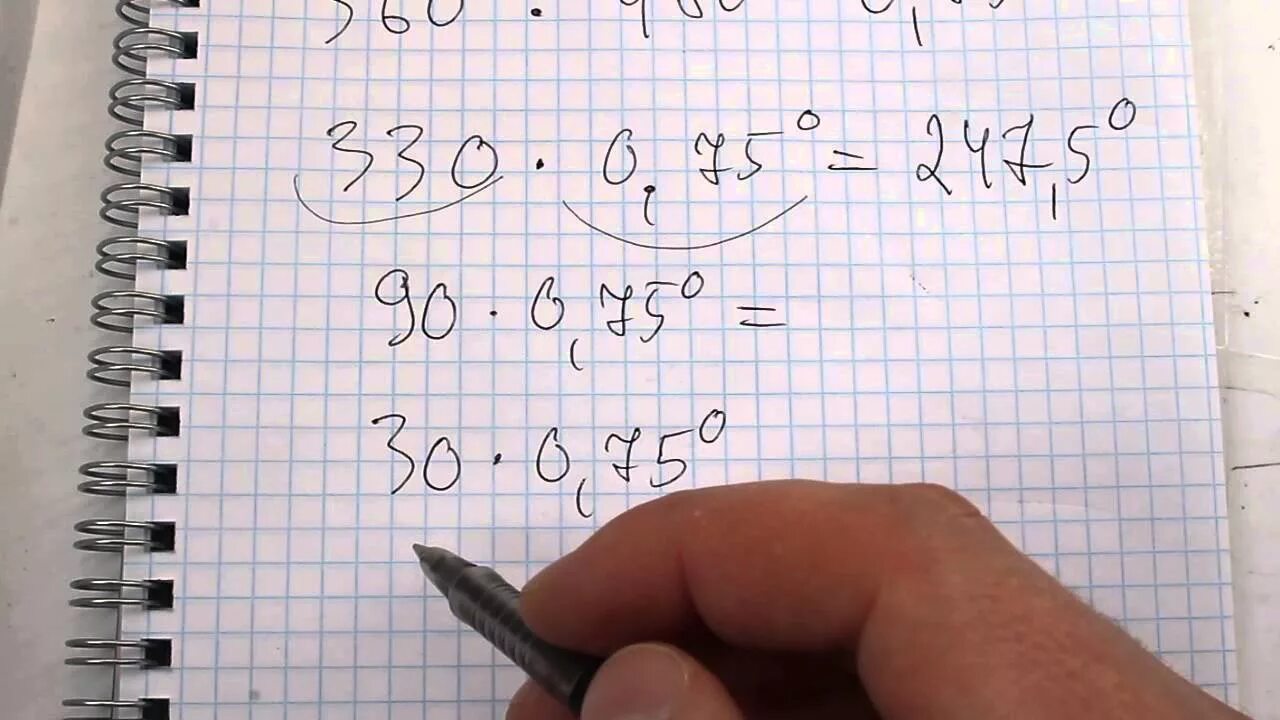 330 · 0,75⁰ = 247,5⁰
90 · 0,75⁰ =
30 · 0,75⁰